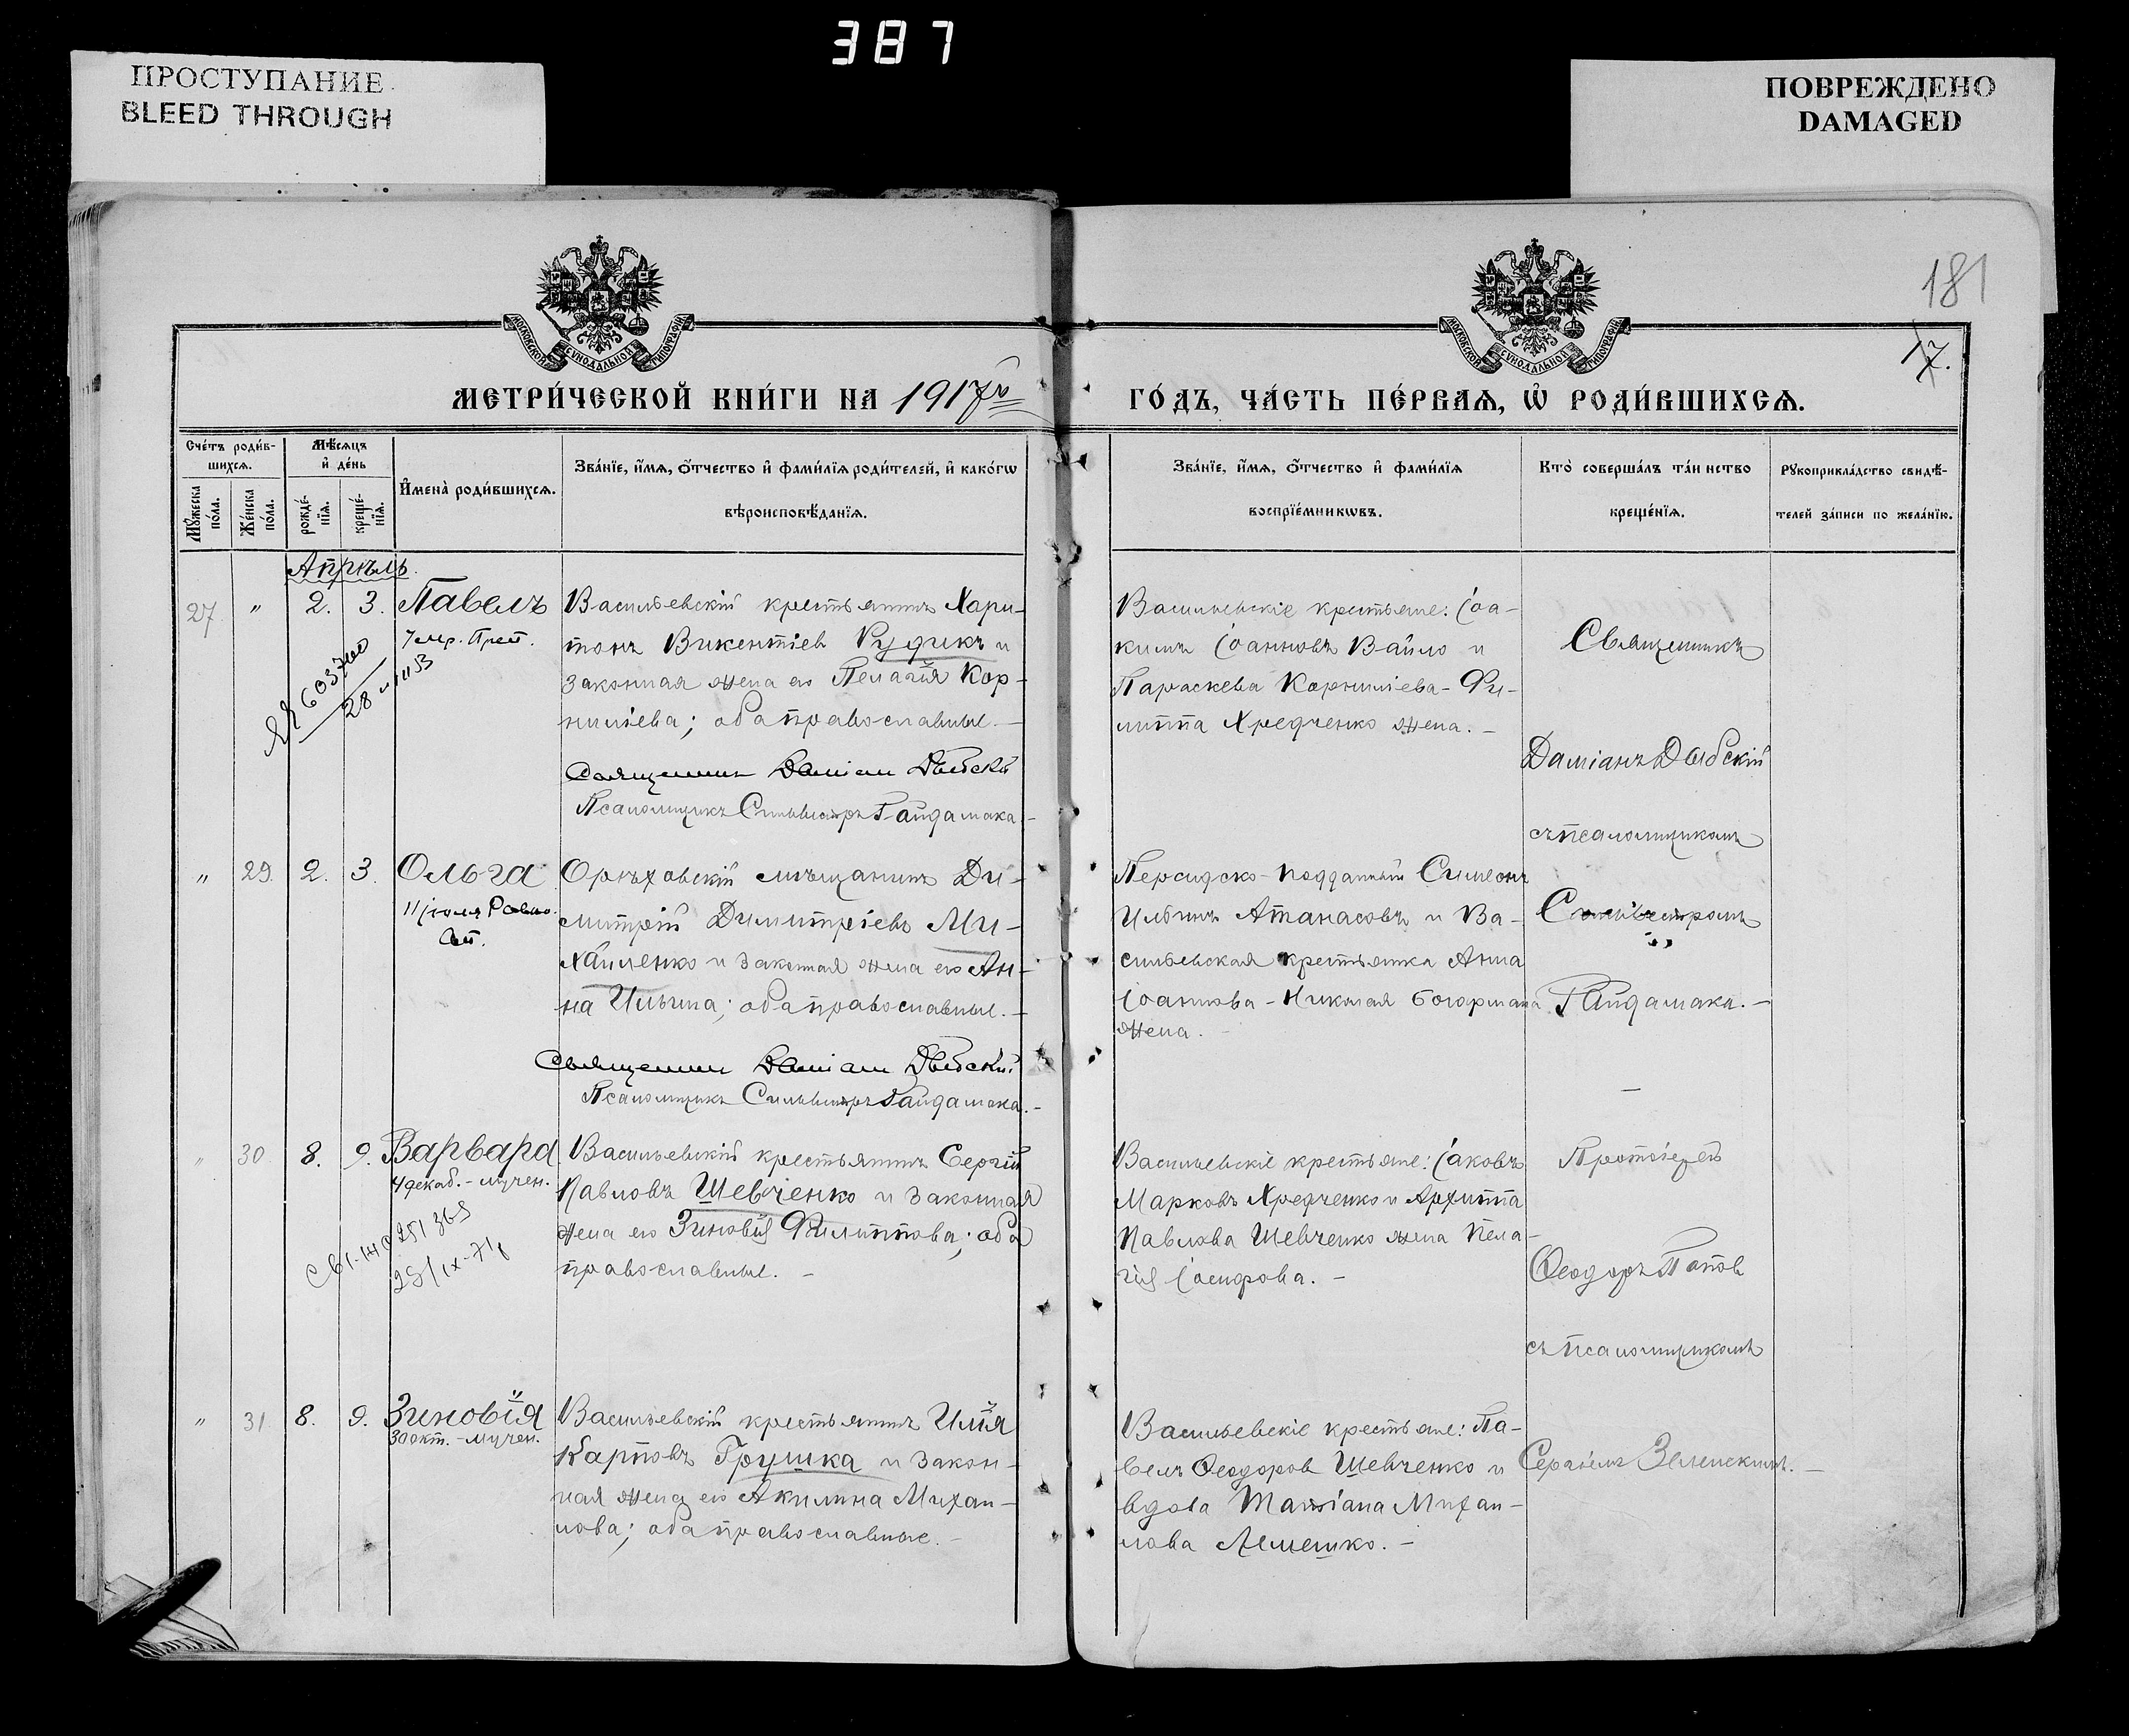 387
ПРОСТУПАНИЕ
BLEED THROUGH
ПОВРЕЖДЕНО
DAMAGED
181
17.
МОСКОВСКОЙ СѴНОДАЛЬНОЙ ТИПОГРАФІИ
МОСКОВСКОЙ СѴНОДАЛЬНОЙ ТИПОГРАФІИ
МЕТРИ́ЧЕСКОЙ КНИ́ГИ НА 1917й
ГО́ДЪ, ЧА́СТЬ ПЕ́РВАЯ, Ѡ҆ РОДИ́ВШИХСЯ.
Сче́тъ роди́в-
шихся.
Мꙋ́жеска по́ла.
Же́нска по́ла.
Мѣ́сяцъ
и҆ де́нь
рожде́-
нїя.
креще́-
нїя.
И҆мена̀ роди́вшихся.
Зва́нїе, и҆́мя, ѻ҆́тчество и҆ фами́лїя роди́телей, и҆ како́гѡ
вѣроисповѣ́данїя.
Зва́нїе, и҆́мя, ѻ҆́тчество и҆ фами́лїя
воспрїе́мникѡвъ.
Кто̀ соверша́лъ та́инство
креще́нїя.
Рꙋкоприкла́дство свидѣ́-
телей за́писи по жела́нїю.
Апрѣль.
27. " 2. 3. Павелъ
Васильевскій крестьянинъ Хари-
тонъ Викентіев Рудикъ и
законная жена его Пелагія Кор-
ниліева; оба православные.—
Священник Даміан Дыбскій
Псаломщикъ Сильвестръ Гайдамака.—
Васильевскіе крестьяне: Іоа-
кимъ Іоанновъ Вайло и
Параскева Корниліева-Фи-
липпа Хредченко жена.—
Священникъ
Даміанъ Дыбскій
съ псаломщикомъ
603700
" 29. 2. 3. Ольга
11 іюля Равно
ап.
Орѣховскій мѣщанинъ Ди-
митрій Димитріевъ Ми-
хайленко и законная жена его Ан-
на Ильина; оба православные.—
Священник Даміан Дыбскій
Псаломщикъ Сильвестръ Гайдамака.—
Персидско-подданный Симеонъ
Атанасовъ и Ва-
сильевская крестьянка Анна
Іоаннова-Николая
жена.—
Сильвестромъ
Гайдамака.—
" 30 8. 9. Варвара
4 декаб.-мучен.
Васильевскій крестьянинъ Сергій
Павловъ Шевченко и законная
жена его Зиновія Филиппова; оба
православные.—
Васильевскіе крестьяне: Іаковъ
Марковъ Хредченко и Архиппа
Павлова Шевченко жена Пела-
гія Іосифова.—
Протоіерей
Ѳеодоръ Попов
съ псаломщикомъ
25/IX-71
" 31 8. 9. Зиновія
30 окт.-мучен.
Васильевскій крестьянинъ Илія
Карповъ Грушка и закон-
ная жена его Акилина Михаи-
лова; оба православные.—
Васильевскіе крестьяне: Па-
велъ Ѳеодоров Шевченко и
вдова Татіана Михаи-
лова Лемешко.—
Зеленскимъ.—